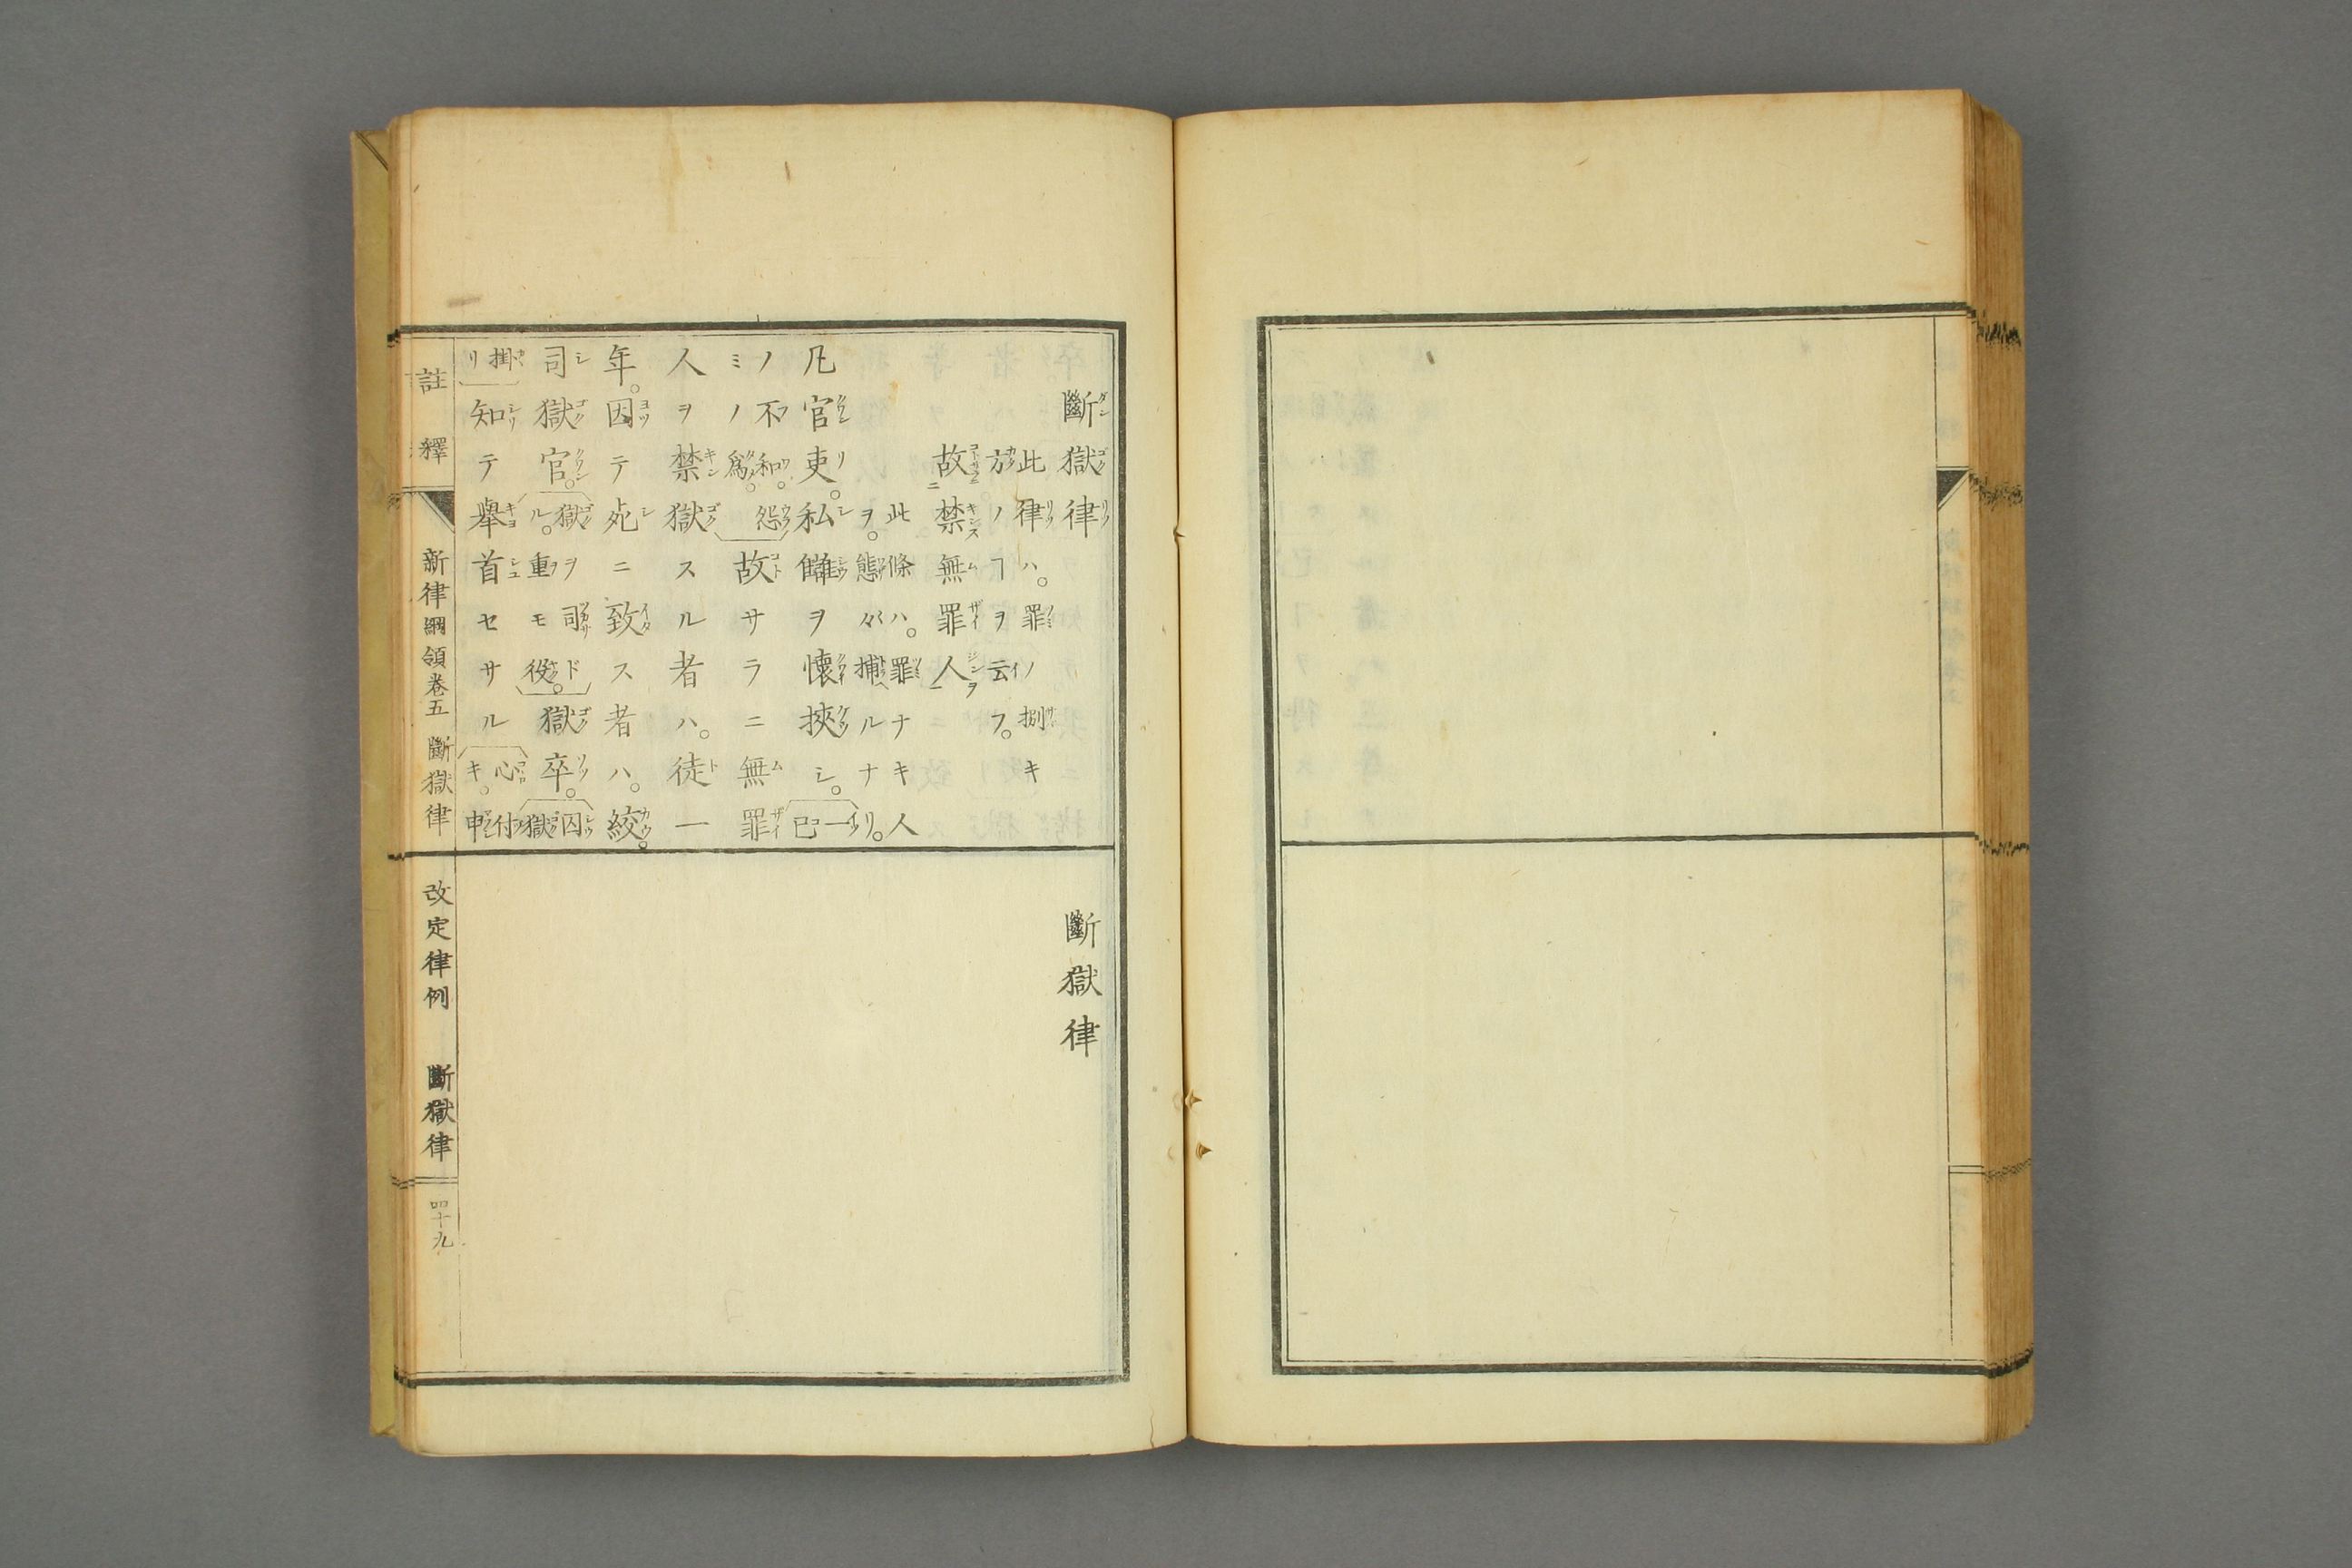 斷獄律
此律ハ。罪ノ捌キ
方ノヿヲ云フ。
故禁無罪人
此條ハ。罪ナキ人
ヲ。態々捕ルナナリ。
凡官吏。私讎ヲ懷挾シ。一己
ノ不和。怨ミノ爲。故サラニ無罪
人ヲ禁獄スル者ハ。徒一
年。因テ死ニ致ス者ハ。絞。
司獄官。獄ヲ司ドル。重モ役。獄卒。囚獄
掛リ知テ擧首セサル心付キ。申
斷獄律
註釋 新律綱領卷五 斷獄律 改定律例 斷獄律 四十九